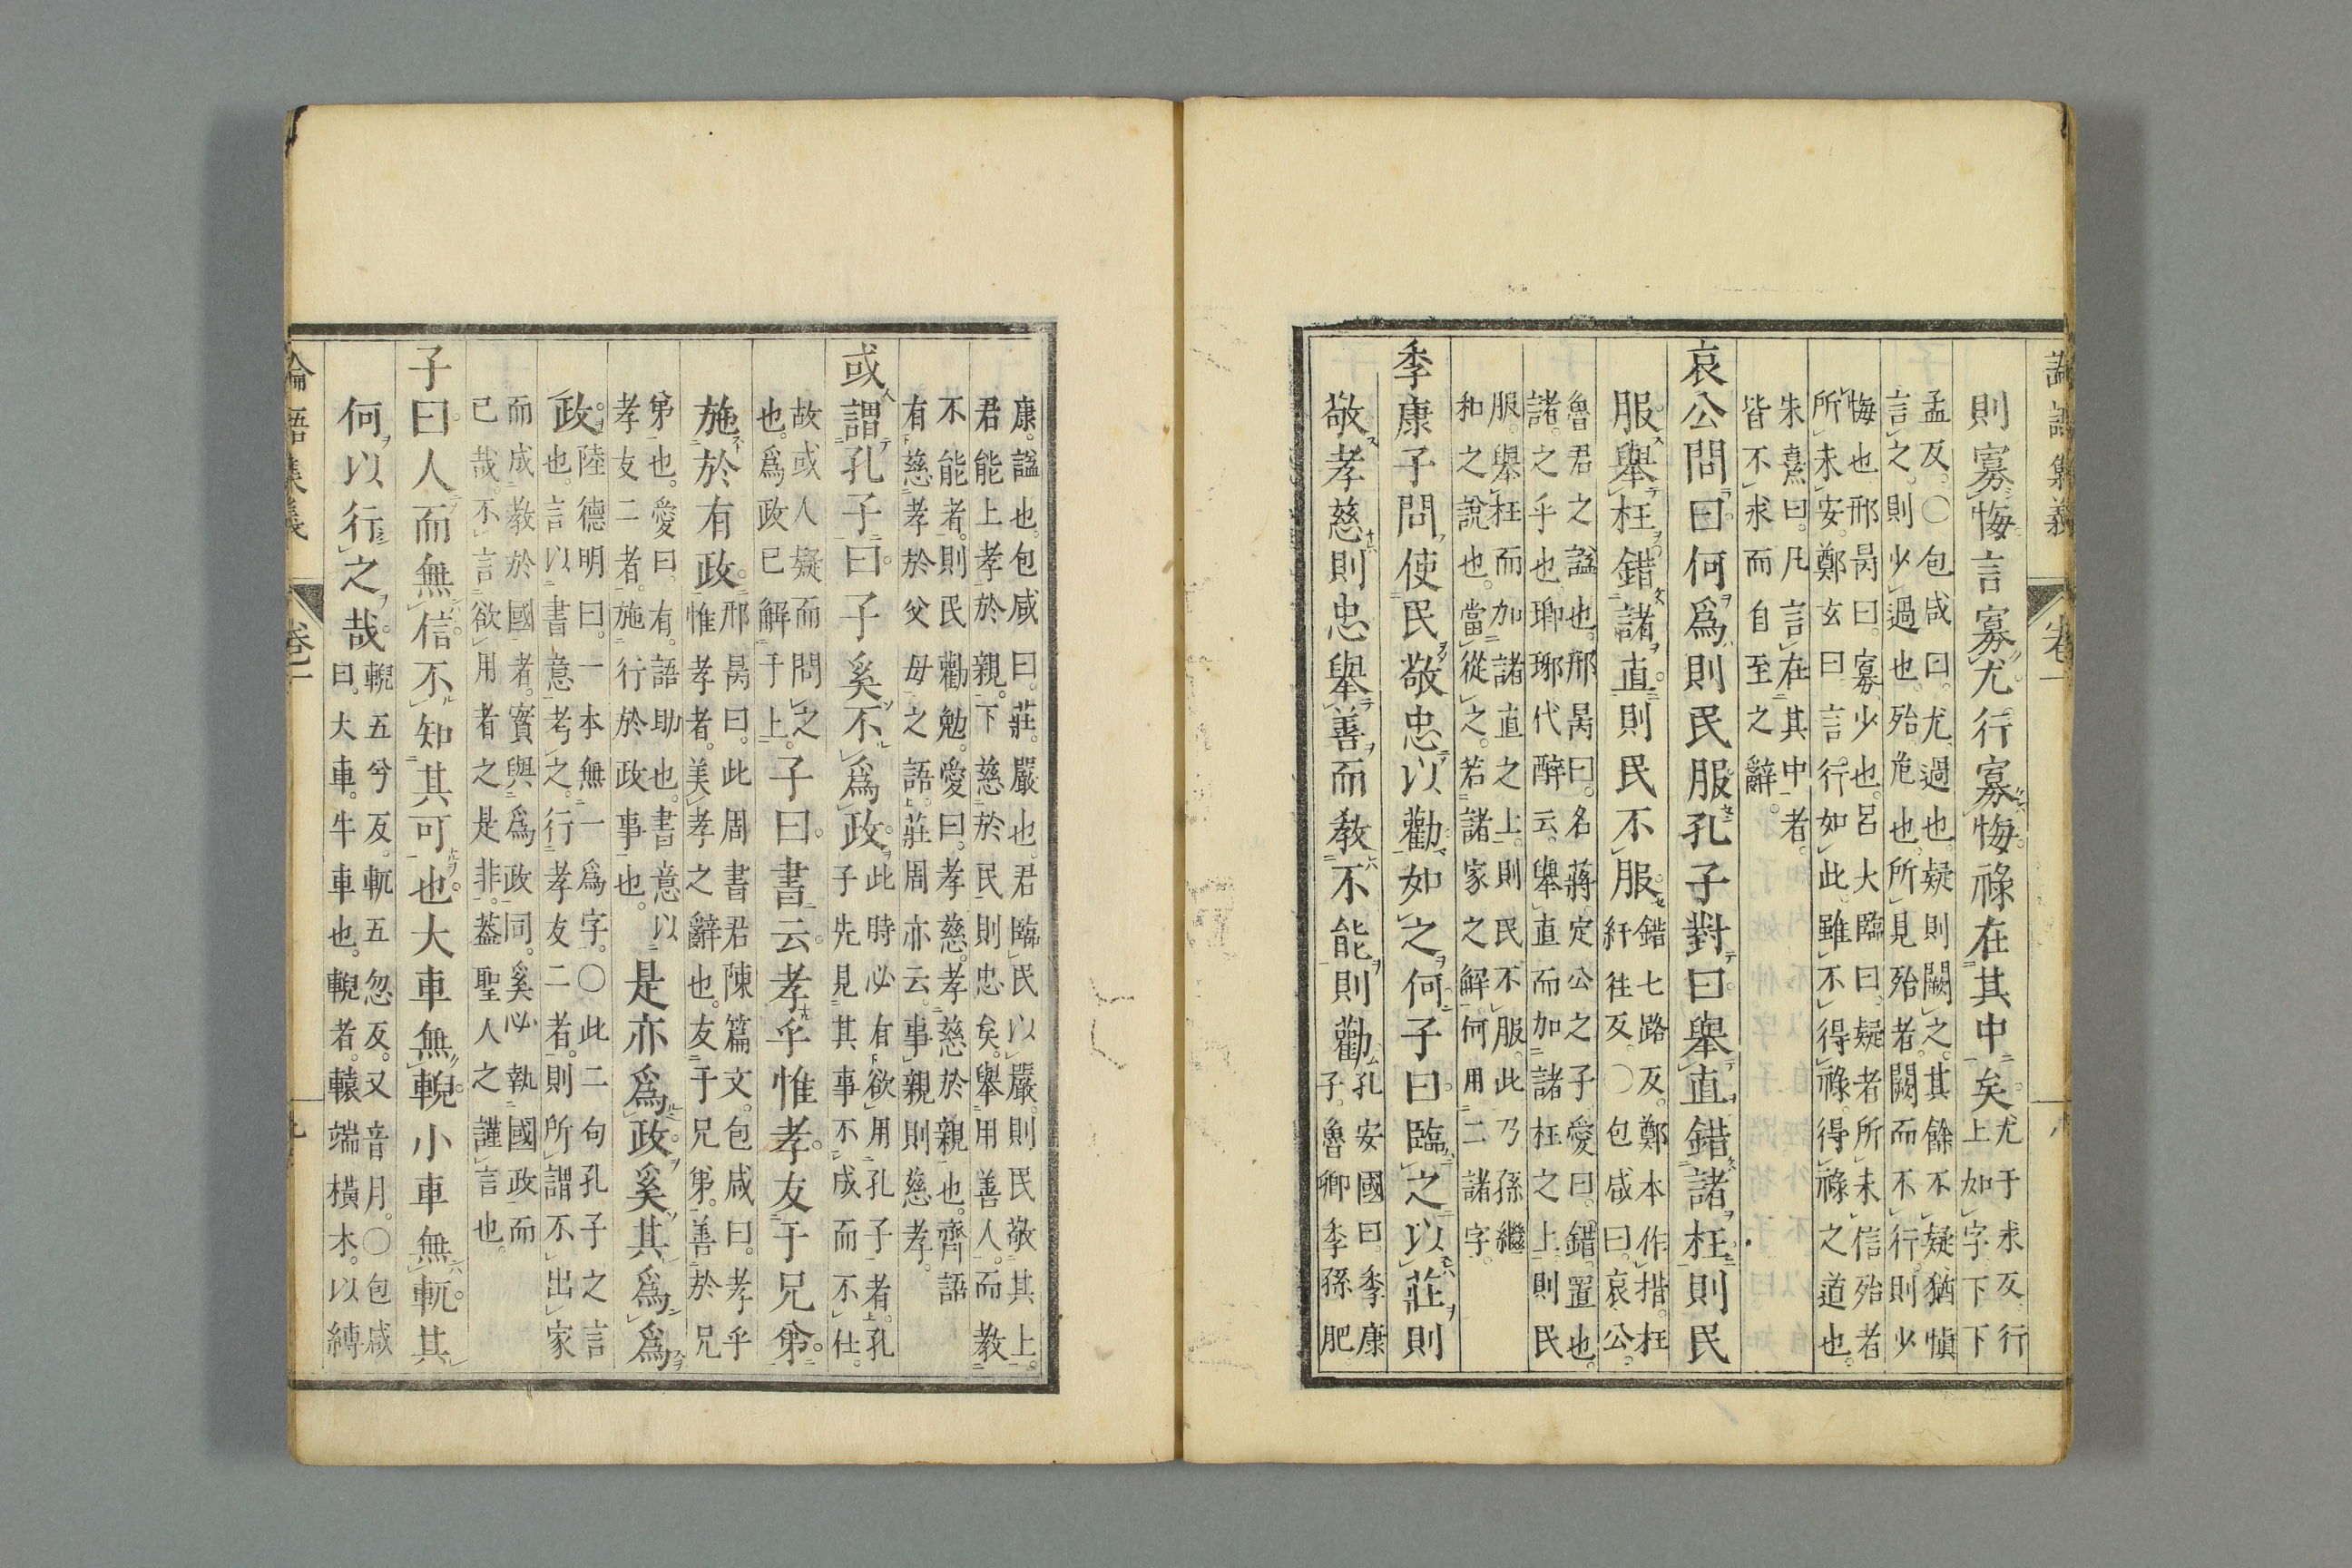 論語集義
卷一
八
則寡悔言寡尤行寡悔祿在其中矣尤于求反行
上如字下下
孟反○包咸曰尤過也疑則闕之其餘不疑猶愼
言之則少過也殆危也所見殆者闕而不行則少
悔也邢昺曰寡少也呂大臨曰疑者所未信殆者
所未安鄭玄曰言行如此雖不得祿得祿之道也
朱熹曰凡言在其中者
皆不求而自至之辭
哀公問曰何爲則民服孔子對曰舉直錯諸枉則民
服舉枉錯諸直則民不服錯七路反鄭本作措枉
紆往反○包咸曰哀公
魯君之謚也邢昺曰名蔣定公之子愛曰錯置也
諸之乎也瑯琊代醉云舉直而加諸枉之上則民
服舉枉而加諸直之上則民不服此乃孫繼
和之說也當從之若諸家之解何用二諸字
季康子問使民敬忠以勸如之何子曰臨之以莊則
敬孝慈則忠舉善而教不能則勸孔安國曰季康
子魯卿季孫肥
康謚也包咸曰莊嚴也君臨民以嚴則民敬其上
君能上孝於親下慈於民則忠矣舉用善人而教
不能者則民勸勉愛曰孝慈孝慈於親也齊語
有慈孝於父母之語莊周亦云事親則慈孝
或謂孔子曰子奚不爲政此時必有欲用孔子者孔
子先見其事不成而不仕
故或人疑而問之
也爲政已解于上子曰書云孝乎惟孝友于兄弟
施於有政邢昺曰此周書君陳篇文包咸曰孝乎
惟孝者美孝之辭也友于兄弟善於兄
弟也愛曰有語助也書意以
孝友二者施行於政事也是亦爲政奚其爲爲
政陸德明曰一本無一爲字○此二句孔子之言
也言以書意考之行孝友二者則所謂不出家
而成教於國者實與爲政同奚必執國政而
已哉不言欲用者之是非蓋聖人之謹言也
子曰人而無信不知其可也大車無輗小車無軏其
何以行之哉輗五兮反軏五忽反又音月○包咸
曰大車牛車也輗者轅端橫木以縛
論語集義
卷一
九